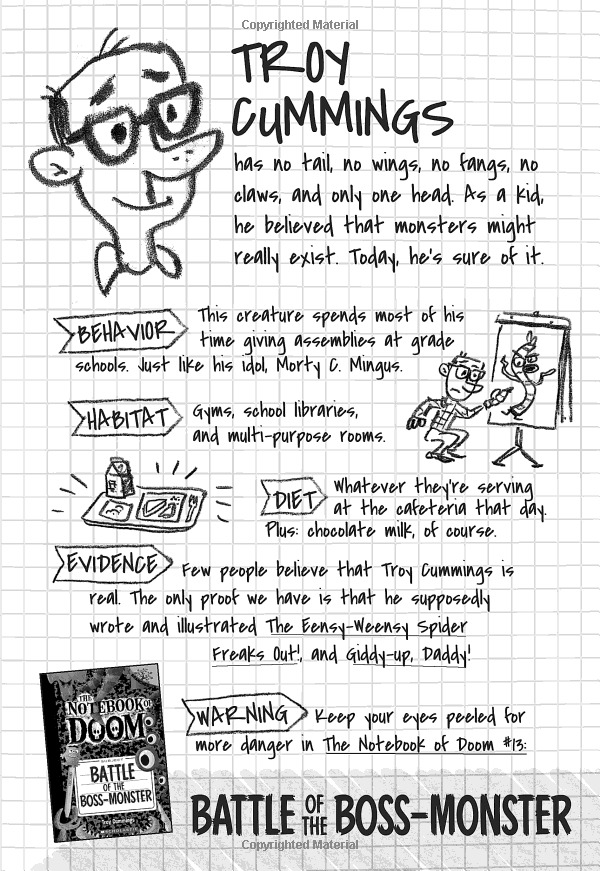 Copyrighted Material
TROY
CUMMINGS
has no tail, no wings, no fangs, no
claws, and only one head. As a kid,
he believed that monsters might
really exist. Today, he's sure of it.
BEHAVIOR
This creature spends most of his
time giving assemblies at grade
schools. Just like his idol, Morty C. Mingus.
HABITAT
Gyms, school libraries,
and multi-purpose rooms.
DIET
Whatever they're serving
at the cafeteria that day.
Plus: chocolate milk, of course.
EVIDENCE
Few people believe that Troy Cummings is
real. The only proof we have is that he supposedly
wrote and illustrated The Eensy-Weensy Spider
Freaks Out!, and Giddy-up, Daddy!
THE
NOTEBOOK OF
DOOM
SUBJECT
BATTLE
OF THE
BOSS-MONSTER
Troy Cummings
SCHOLASTIC
WARNING
Keep your eyes peeled for
more danger in The Notebook of Doom #13:
BATTLE OF THE BOSS-MONSTER
Copyrighted Material